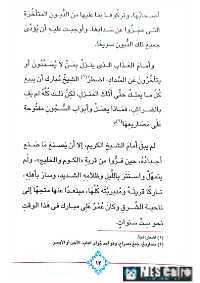 أصحابها، وتركوا ما عليها من الديون المتأخرة
التي عجزوا عن سدادها، وأوجبت عليه أن يؤدي
جميع تلك الديون سريعًا.
وأمام العذاب الذي ينزل بمن لا يسددون أو
يتأخرون عن السداد، اضطر(١) الشيخ مبارك أن يبيع
كل ما يملك حتى أثاث المنزل، لكن ذلك كله لم يف
بالضرائب، فماذا يفعل وأبواب السجون مفتوحة
على مصاريعها(٢)؟
لم يبق أمام الشيخ الكريم، إلا أن يصنع ما صنع
أجداده، حين فروا من قرية «الكوم والخليج»، ولم
يتمهل، واستتر بالليل وظلامه الشديد، وسار بأهله،
تاركًا قريته ومديريته كلها، مبتعدًا عنها متجهًا إلى
ناحية الشرق وكان عمر علي مبارك في هذا الوقت
نحو ست سنوات.
(١) اضطر: أجبر.
١٣